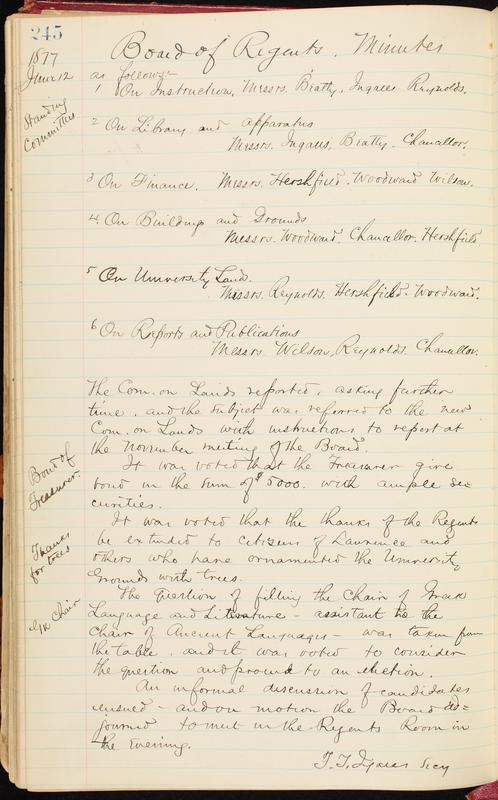 245
Board of Regents. Minutes
1877
June 12
as follows-
1 On Instruction, Messrs. Beatty. Ingalls Reynolds.
Standing
Committees
2 On Library and apparatus
Messrs. Ingalls, Beatty. Chancellor.
3 On Finance. Messrs. Hershfield. Woodward Wilson.
4. On Buildings and Grounds
Messrs. Woodward. Chancellor. Hershfield.
5 On University Lands.
Messrs. Reynolds. Hershfield. Woodward.
6 On Reports and Publications
Messrs. Wilson, Reynolds. Chancellor.
The Com. on Lands reported, asking further
time, and the subject was referred to the new
Com. on Lands with instructions to report at
the November meeting of the Board.
Bond of
Treasurer.
It was voted that the Treasurer give
bond in the sum of $5000. with ample se-
curities.
Thanks
for trees
It was voted that the thanks of the Regents
be extended to citizens of Lawrence and
others who have ornamented the University
Grounds with trees.
Gk Chair
The question of filling the Chair of Greek
Language and Literature - assistant to the
chair of Ancient Languages - was taken from
the table, and it was voted to consider
the question and proceed to an election.
An informal discussion of candidates
ensued - and on motion the Board ad=
journed to meet in the Regents Room in
the Evening.
Secy